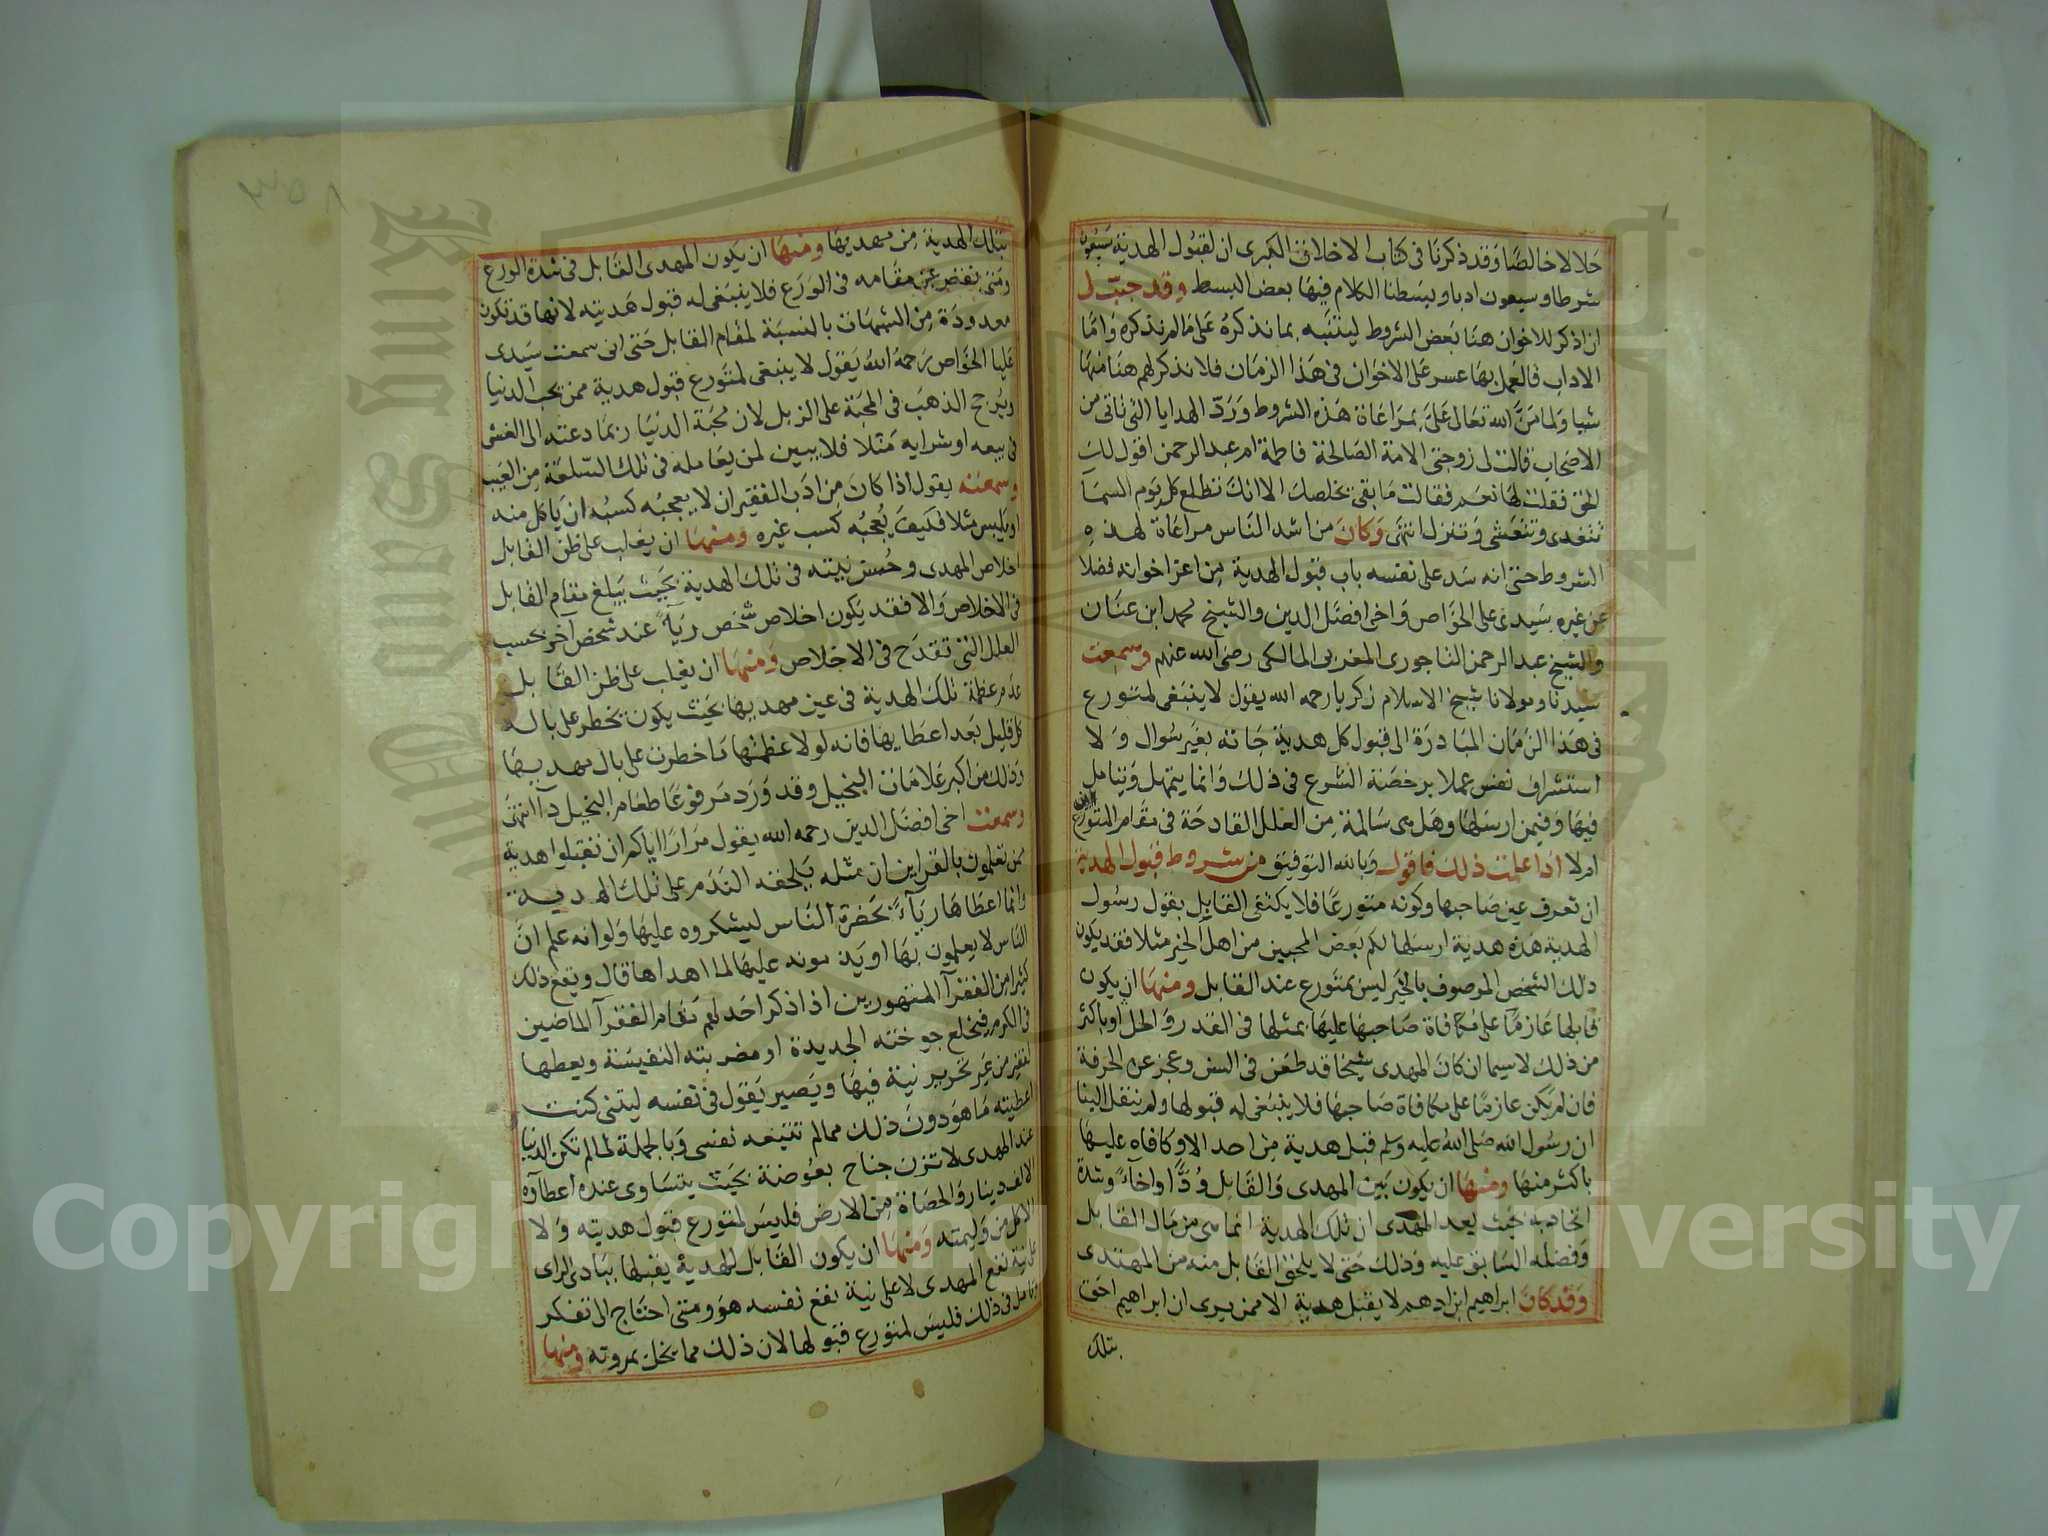 حلالا خالصا وقد ذكرنا فى كتاب الاخلاق الكبرى ان لقبول الهدية سبعون
شرطا وسبعون ادبا وبسطنا الكلام فيها بعض البسط وقد حبب لى
ان اذكر للاخوان هنا بعض الشروط لينتبه بما نذكره على ما لم نذكره واما
الاداب فالعمل بها عسر على الاخوان فى هذا الزمان فلا نذكر لهم هنا منها
شيا ولما من الله تعالى على بمراعاة هذه الشروط ورد الهدايا التى تاتى من
الاصحاب قالت لى زوجتى الامة الصالحة فاطمة ام عبد الرحمن اقول لك
الحق فقلت لها نعم فقالت ما بقى يخلصك الا انك تطلع كل يوم السما
تتغدى وتتعشى وتنزل انتهى وكان من اشد الناس مراعاة لهذه
الشروط حتى انه سد على نفسه باب قبول الهدية من اعز اخوانه فضلا
عن غيره سيدى على الخواص واخى افضل الدين والشيخ محمد ابن عنان
والشيخ عبد الرحمن التاجورى المغربى المالكى رضى الله عنهم وسمعت
سيدنا ومولانا شيخ الاسلام زكريا رحمه الله يقول لا ينبغى لمتورع
فى هذا الزمان المبادرة الى قبول كل هدية جاته بغير سوال ولا
استشراف نفس عملا برخصة الشرع فى ذلك وانما يتمهل ويتامل
فيها وفيمن ارسلها وهل هى سالمة من العلل القادحة فى مقام المتورعين
ام لا اذا علمت ذلك فاقول وبالله التوفيق من شروط قبول الهدية
ان تعرف عين صاحبها وكونه متورعا فلا يكتفى القابل بقول رسول
الهدية هذه هدية ارسلها لكم بعض المحبين من اهل الخير مثلا فقد يكون
ذلك الشخص الموصوف بالخير ليس بمتورع عند القابل ومنها ان يكون
قابلها عازما على مكافاة صاحبها عليها بمثلها فى القدر والحل او باكثر
من ذلك لاسيما ان كان المهدى شيخا قد طعن فى السن وعجز عن الحرفة
فان لم يكن عازما على مكافاة صاحبها فلا ينبغى له قبولها ولم ينقل الينا
ان رسول الله صلى الله عليه وسلم قبل هدية من احد الا وكافاه عليها
باكثر منها ومنها ان يكون بين المهدى والقابل ودا واخاء وشدة
اتحاد به بحيث يعد المهدى ان تلك الهدية انما هى من مال القابل
وفضله السابق عليه وذلك حتى لا يلحق القابل منه من المهتدى
وقد كان ابراهيم ابن ادهم لا يقبل هدية الا ممن يرى ان ابراهيم احق
بتلك
بتلك الهدية من مهديها ومنها ان يكون المهدى القابل فى شدة الورع
ومتى نقص عن مقامه فى الورع فلا ينبغى له قبول هديته لانها قد تكون
معدودة من الشبهات بالنسبة لمقام القابل حتى انى سمعت سيدى
عليا الخواص رحمه الله يقول لا ينبغى لمتورع قبول هدية ممن يحب الدنيا
ويرجح الذهب فى المحبة على الزبل لان محبة الدنيا ربما دعته الى الغش
فى بيعه او شرايه مثلا فلا يبين لمن يعامله فى تلك السلعة من العيب
وسمعته يقول اذا كان من ادب الفقير ان لا يعجبه كسبه ان ياكل منه
او يلبس مثلا فكيف يعجبه كسب غيره ومنها ان يغلب على ظن القابل
اخلاص المهدى وحسن نيته فى تلك الهدية بحيث يبلغ مقام القابل
فى الاخلاص والا فقد يكون اخلاص شخص رياء عند شخص آخر بحسب
العلل التى تقدح فى الاخلاص ومنها ان يغلب على ظن القابل
عدم عظمة تلك الهدية فى عين مهديها بحيث يكون يخطر على باله
كل قليل بعد اعطايها فانه لولا عظمتها ما خطرت على بال مهديها
وذلك من اكبر علامات البخيل وقد ورد مرفوعا طعام البخيل دآ انتهى
وسمعت اخى افضل الدين رحمه الله يقول مرارا اياكم ان تقبلوا هدية
من تعلمون بالقراين ان مثله يلحقه الندم على تلك الهدية
وانما اعطاها رياء بحضرة الناس ليشكروه عليها ولو انه علم ان
الناس لا يعلمون بها او يذمونه عليها لما اهداها قال ويقع ذلك
كثيرا من الفقرآ المتهورين اذا ذكر احد لهم مقام الفقرآ الماضين
فى الكرم فيخلع جوخته الجديدة او مضربته النفيسة ويعطها
لفقير من غير تحرير نية فيها ويصير يقول فى نفسه ليتنى كنت
اعطيته ما هو دون ذلك مما لم تتبعه نفسى وبالجملة لما لم تكن الدنيا
عند المهدى لا تزن جناح بعوضة بحيث يتساوى عنده اعطآؤه
الالف دينار والحصاة من الارض فليس لمتورع قبول هديته ولا
الاكل من وليمته ومنها ان يكون القابل للهدية يقبلها ببادى الراى
على نية نفع المهدى لا على نية نفع نفسه هو ومتى احتاج الى تفكر
وتامل فى ذلك فليس لمتورع قبولها لان ذلك مما يخل بمروته ومنها
Copyright © King Saud University